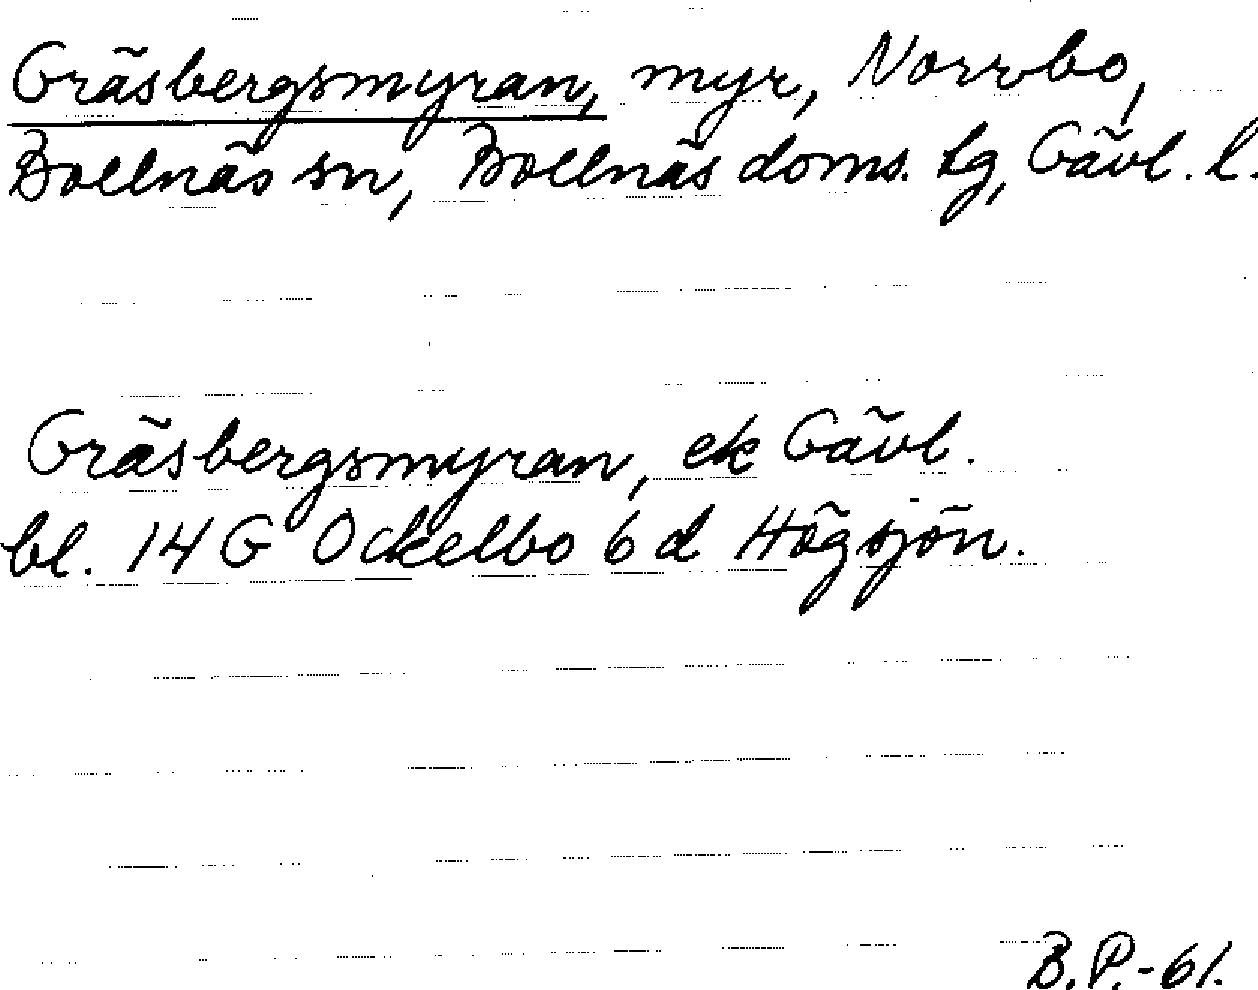 Gräsbergsmyran, myr, Norrbo,
Bollnäs sn, Bollnäs doms. tg, Gävl. l.
Gräsbergsmyran, ek Gävl.
bl. 14 G Ockelbo 6 d Högsjön.
B.P.-61.